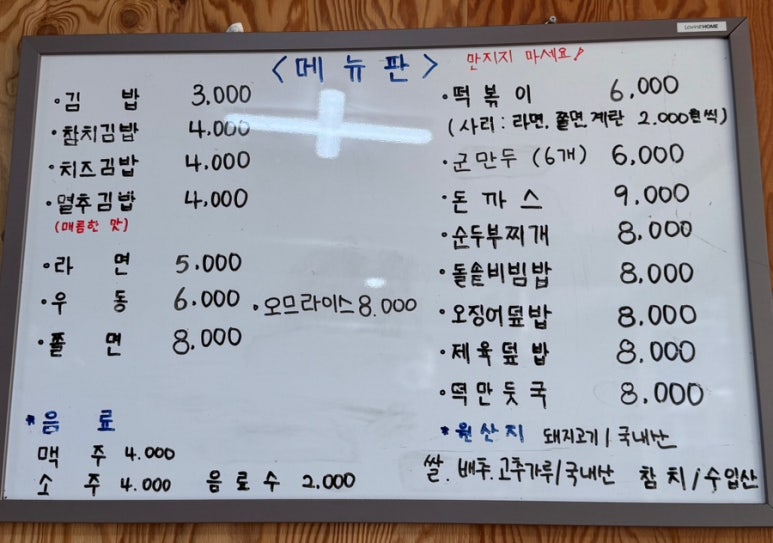 <메뉴판> 만지지 마세요!
·김 밥 3.000
·참치김밥 4.000
·치즈김밥 4.000
·멸추김밥 4.000
(매콤한 맛)
·라 면 5.000
·우 동 6.000
·쫄 면 8.000
·오므라이스 8.000
·떡 볶 이 6.000
(사리 : 라면, 쫄면 계란 2.000원씩)
·군만두 (6개) 6,000
·돈 까 스 9.000
·순두부찌개 8.000
·돌솥비빔밥 8,000
·오징어덮밥 8.000
·제육덮밥 8.000
·떡만둣국 8.000
*음 료
맥 주 4.000
소 주 4.000 음료수 2.000
*원산지 돼지고기/국내산
쌀. 배추. 고추가루/국내산 참치/수입산